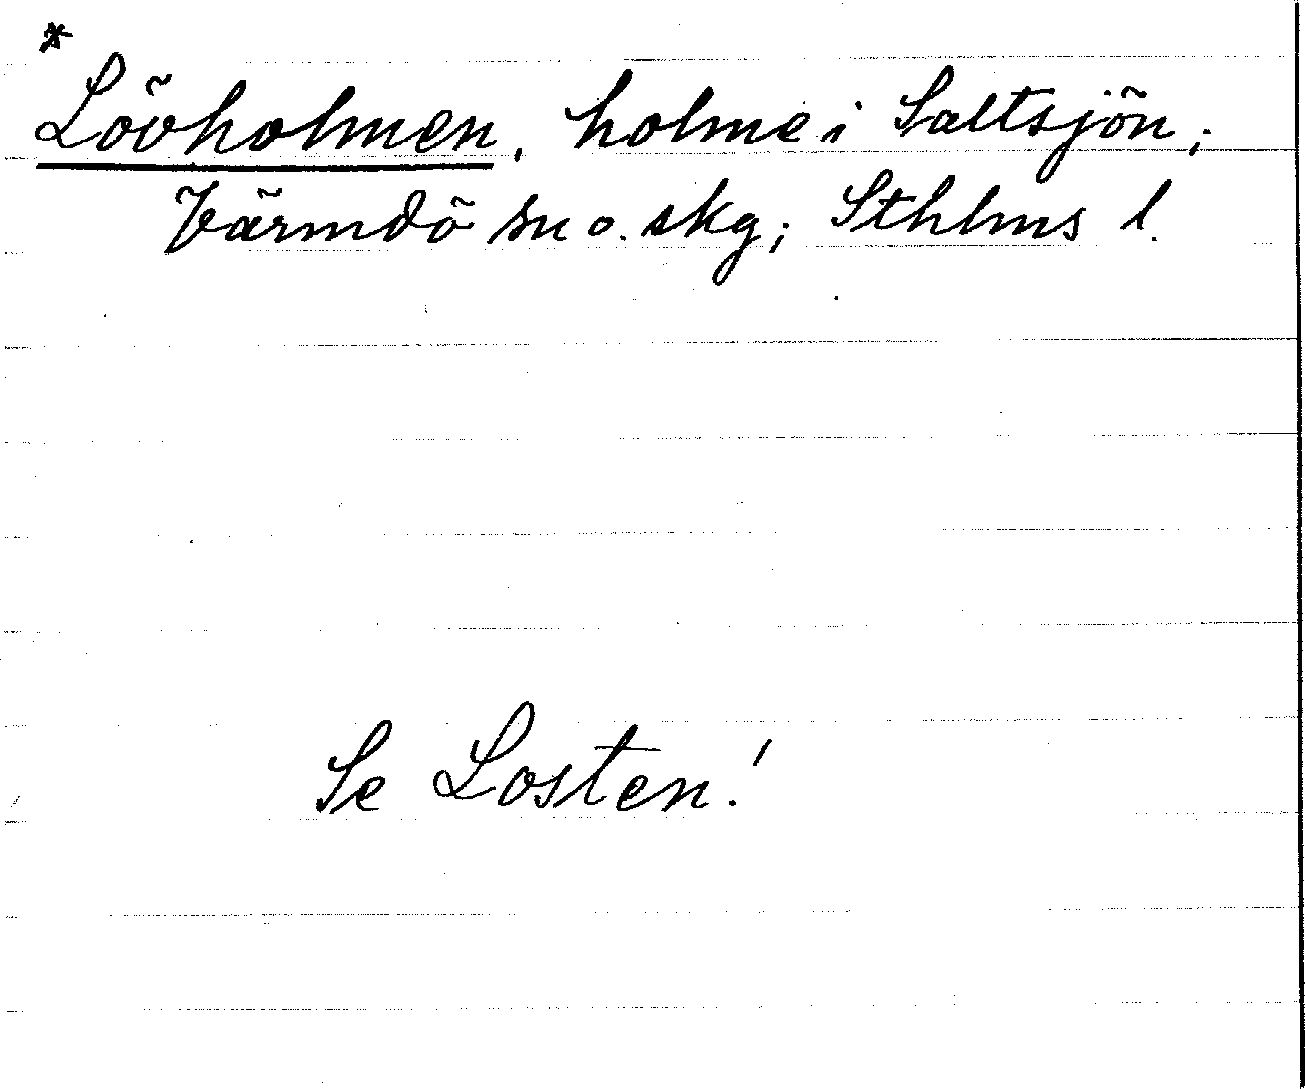 *
Lövholmen, holme i Saltsjön;
Värmdö sn o. skg; Sthlms l.
Se Losten!